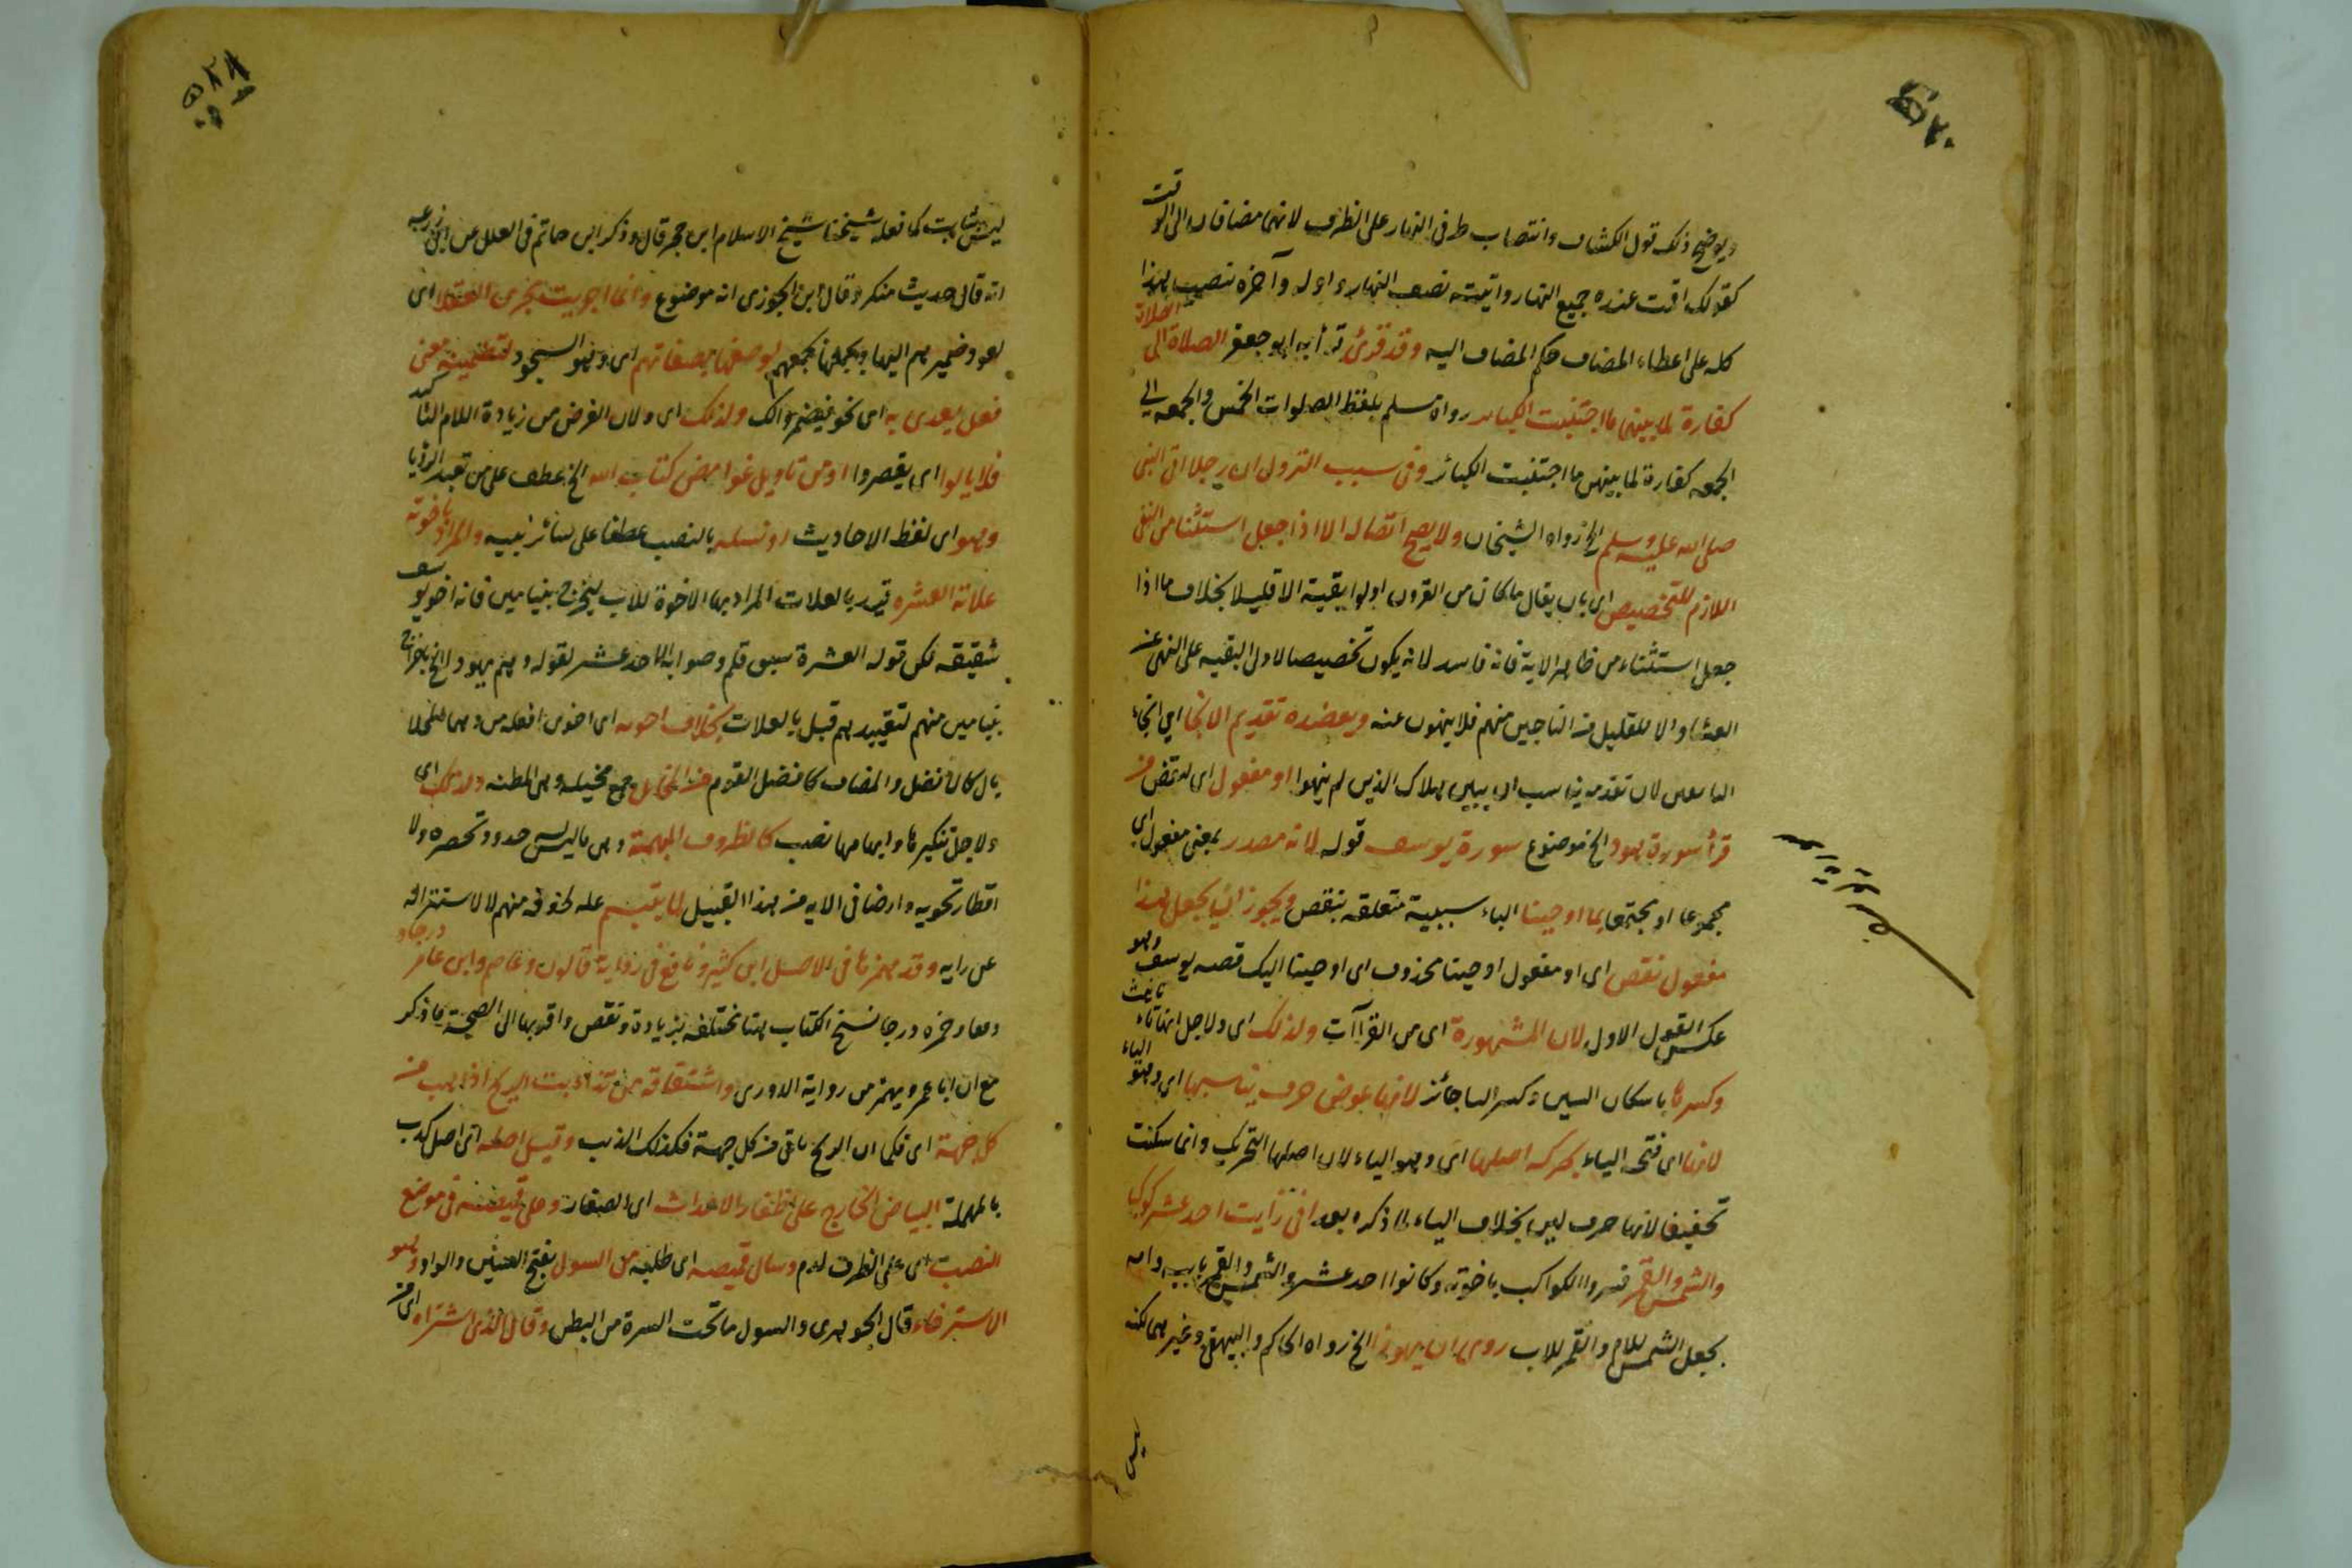 ويوضح ذلك قول الكشاف وانتصاب طرفى النهار على الظرف لانهما مضافان الى الوقت
كقولك اقمت عنده جميع النهار واتيته نصف النهار واوله وآخره تنصب هذا
كله على اعطاء المضاف حكم المضاف اليه وقد قرئ قرأ به ابو جعفر الصلاة الى الصلاة
كفارة لما بينهما ما اجتنبت الكبائر رواه مسلم بلفظ الصلوات الخمس والجمعه الى
الجمعه كفارة لما بينهن ما اجتنبت الكبائر وفى سبب النزول ان رجلا اتى النبى
صلى الله عليه وسلم الخ رواه الشيخان ولا يصح اتصاله الا اذا جعل استثنا من النفى
اللازم للتخصيص اى بان يقال ما كان من القرون اولوا بقية الا قليلا بخلاف ما اذا
جعل استثناء من ظاهر الاية فانه فاسد لانه يكون تخصيصا لاولى البقيه على النهى عن
الفساد الا للقليل من الناجين منهم فلا ينهون عنه ويعضده تقديم الانجا اى انجاء
الناهين لان تقدمه يناسب ان يبين هلاك الذين لم ينهوا او مفعول اى لنقص من
قرأ سورة هود الخ موضوع سورة يوسف قوله لانه مصدر بمعنى مفعول اى
مجموعا او مجتمعا بما اوحينا الباء سببية متعلقه بنقص ويجوز ان يجعل هذا
مفعول نقص اى او مفعول اوحينا محذوف اى اوحينا اليك قصه يوسف وهو
عكس القول الاول لان المشهورة اى من القراآت ولذلك اى ولاجل انها تاء تانيث
وكسرها باسكان السين وكسر التا جائز لانها عوض حرف يناسبها اى وهو الياء
لانها اى فتحة الياء حركه اصلها اى وهو الياء لان اصلها التحريك وانما سكنت
تخفيفا لانها حرف لين بخلاف الياء لما ذكره بعد انى رايت احد عشر كوكبا
والشمس والقمر فسروا الكواكب باخوته وكانوا احد عشر والشمس والقمر بابيه وامه
بجعل الشمس للام والقمر للاب روى ان يهوديا الخ رواه الحاكم والبيهقى وغيرهما لكنه
ليس بثابت كما فعله شيخنا شيخ الاسلام ابن حجر قال وذكر ابن حاتم فى العلل عن ابى زرعه
انه قال حديث منكر وقال ابن الجوزى انه موضوع وانما اجريت مجرى العقلا اى
بعود ضمير هم اليها وبجمعها بجمعهم لوصفها بصفاتهم اى وهو السجود لتضمينه معنى
فعل يعدى به اى نحو فيضروك ولذلك اى ولان الغرض من زيادة اللام التاكيد
فلا يالوا اى يقصروا او من تاويل غوامض كتاب الله الخ عطف على من تعبير الرؤيا
وهو اى لفظ الاحاديث او نسله بالنصب عطفا على سائر بنيه والمراد باخوته
علاته العشره قيد بالعلات المراد بها الاخوة للاب ليخرج بنيامين فانه اخو يوسف
شقيقه لكن قوله العشرة سبق قلم وصوابه الاحد عشر لقوله وهم يهودا الخ باخراج
بنيامين منهم لتقييدهم قبل بالعلات بخلاف اخويه اى اخوى افعل من وهما المحلا
بال كالافضل والمضاف كافضل القوم من المخايل جمع مخيله وهى المظنه ولذلك اى
ولاجل تنكيرها وابهامها نصب كالظروف المبهمة وهى ما ليس له حدود تحصره ولا
اقطار تحويه وارضا فى الايه من هذا القبيل لما يقيم عله لخوفه منهم لا لاستنزاله
عن رايه وقد همزها فى الاصل ابن كثير ونافع فى رواية قالون وعاصم وابن عامر درجا و
وقفا وحمزه درجا نسخ الكتاب هنا مختلفه بزيادة ونقص واقربها الى الصحة ما ذكر
مع ان ابا عمرو يهمز من رواية الدورى واشتقاقه من تذاءبت الريح اذا هبت من
كل جهة اى فكما ان الريح تاتى من كل جهة فكذلك الذيب وقيل اصله اى اصل كدب
بالمهملة البياض الخارج على اظفار الاحداث اى الصغار وعلى قميصه فى موضع
النصب اى على الظرف لدم وسال قميصه اى طلبه من السول بفتح السين والواو وهو
الاسترخاء قال الجوهرى والسول ما تحت السرة من البطن وقال الذى اشتراه اى من